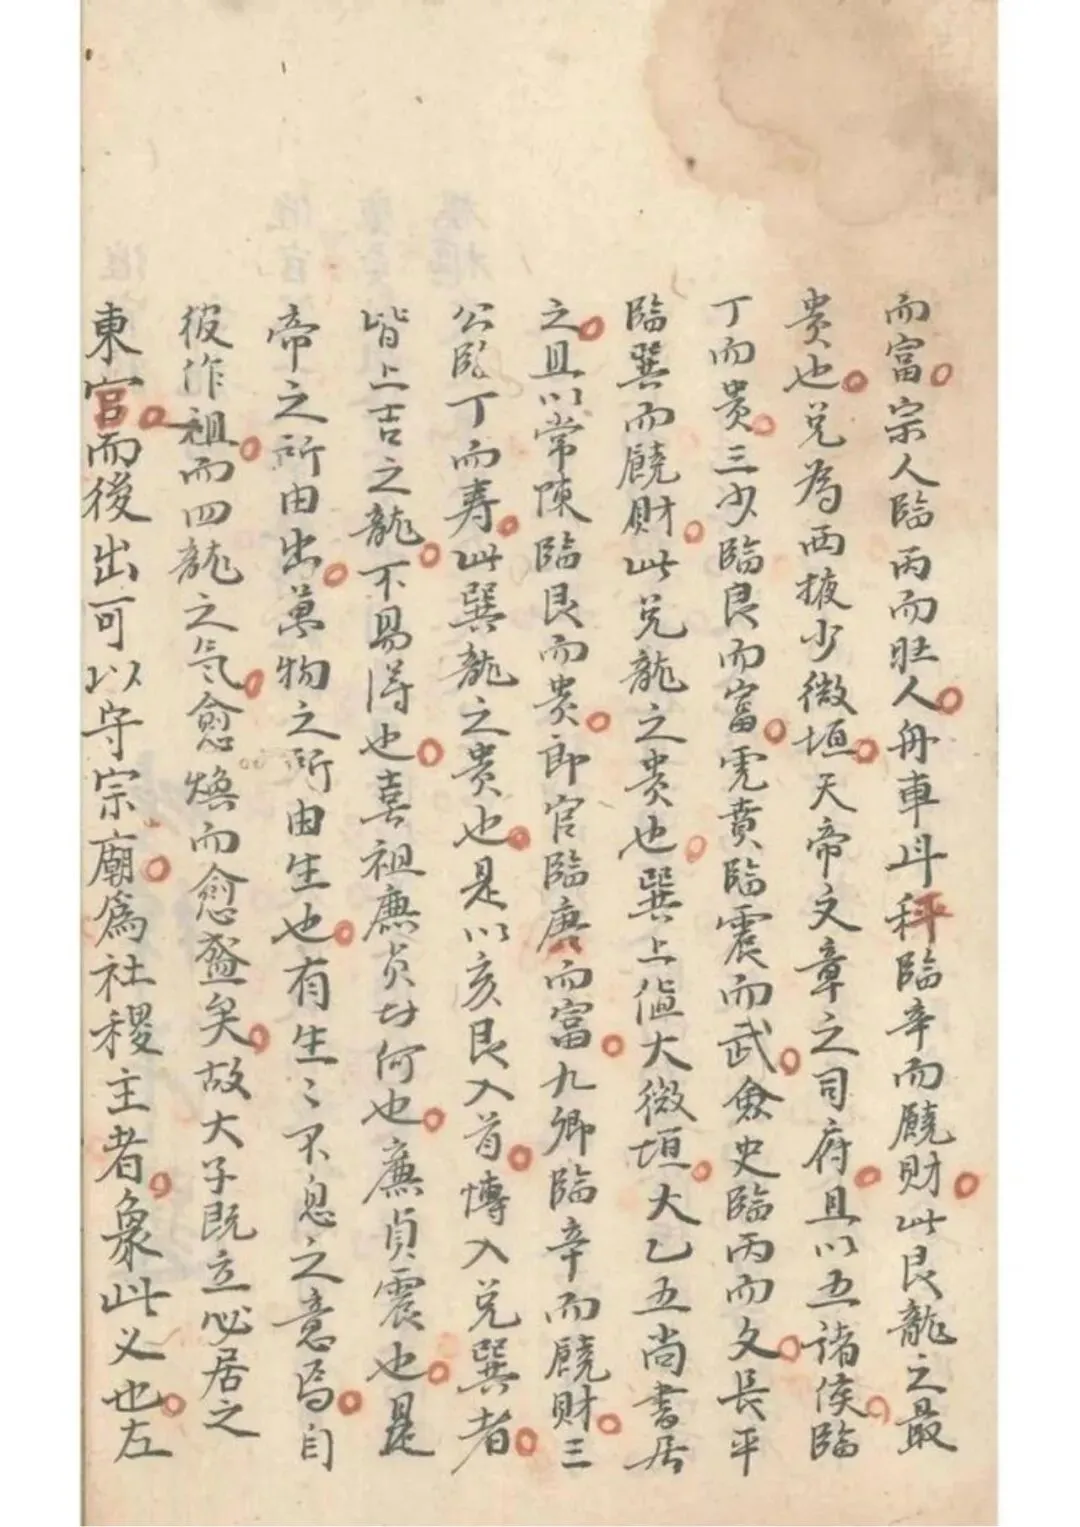 而富宗人臨丙而旺人舟車斗秤臨辛而饒財此艮龍之最
貴也兌為西掖少微垣天帝文章之司府且以五諸侯臨
丁而貴三少臨艮而富虎賁臨震而武僉史臨丙而文長平
臨巽而饒財此兌龍之貴也巽上值大微垣大乙五尚書居
之且以常陳臨艮而貴郎官臨庚而富九卿臨辛而饒財三
公臨丁而寿此巽龍之貴也是以亥艮入首博入兌巽者
皆上吉之龍不易得也喜祖廉貞何也廉貞震也是
帝之所由出萬物之所由生也有生〻不息之意焉自
彼作祖而四龍之气愈煥而愈盛矣故大子既立必居之
東宮而後出可以守宗廟爲社稷主者象此义也左